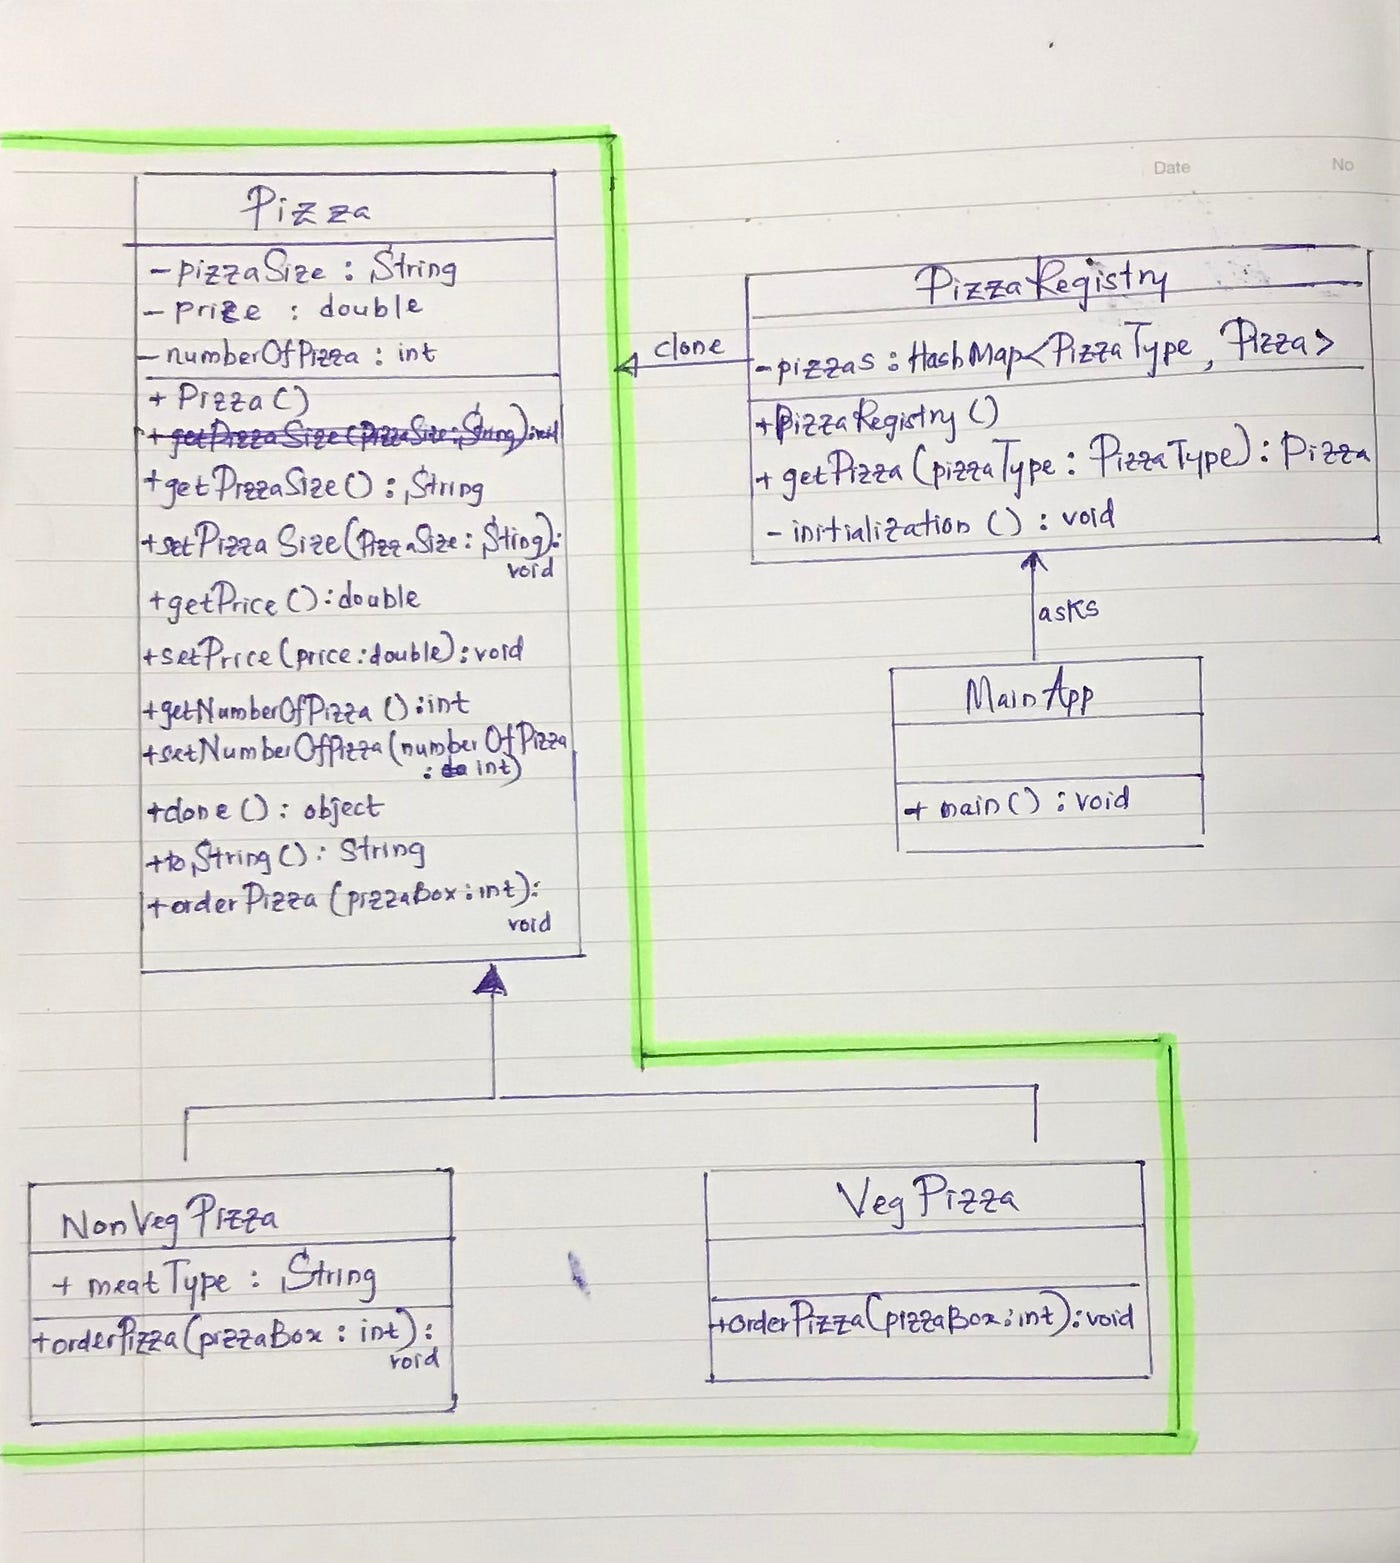 Date No
Pizza
- pizzaSize : String
- price : double
- numberOfPizza : int
+ Pizza()
+ getPizzaSize() : String
+ setPizzaSize(PizzaSize : Sting) :
void
+ getPrice() : double
+ setPrice(price : double) : void
+ getNumberOfPizza() : int
+ setNumberOfPizza(numberOfPizza
: int)
+ clone() : object
+ toString() : String
+ orderPizza(pizzaBox : int) :
void
clone
PizzaRegistry
- pizzas : HashMap<PizzaType, Pizza>
+ PizzaRegistry()
+ getPizza(pizzaType : PizzaType) : Pizza
- initialization() : void
asks
MainApp
+ main() : void
NonVegPizza
+ meatType : String
+ orderPizza(pizzaBox : int) :
void
VegPizza
+ orderPizza(pizzaBox : int) : void